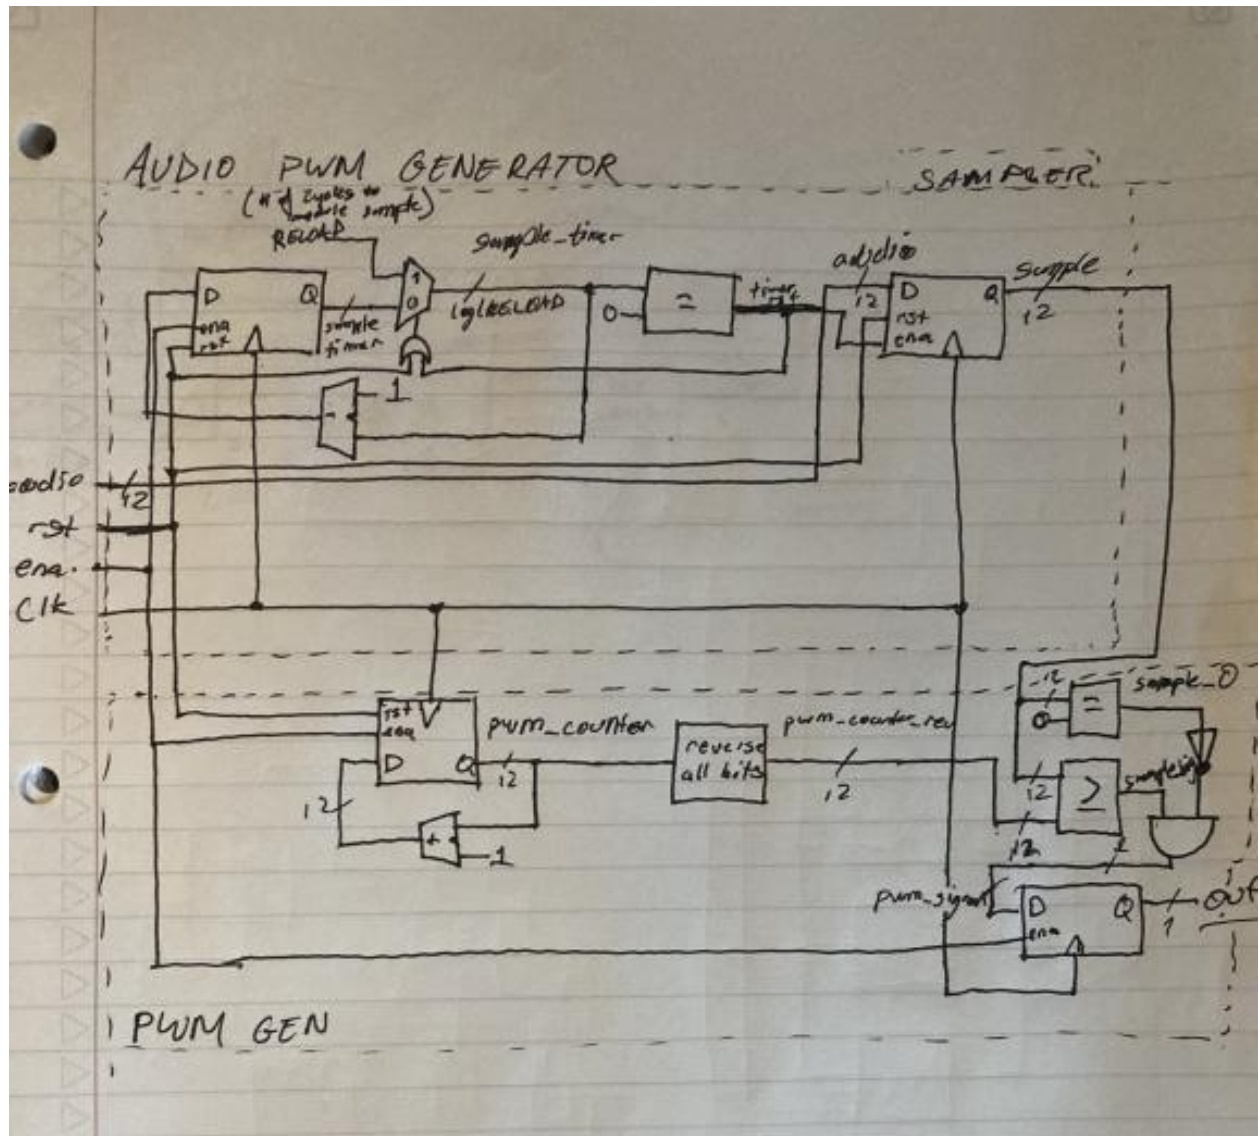 AUDIO PWM GENERATOR
SAMPLER
(# of cycles to
sample)
RELOAD
sample_timer
audio
sample
D Q
ena
rst
sample
timer
1
0
log(RELOAD)
0
=
timer
12
D Q
rst
ena
12
-
1
audio
12
rst
ena
clk
rst
ena
D Q
pwm_counter
12
12
+
1
reverse
all bits
pwm_counter_rev
12
12
0
=
sample_0
12
≥
12
1
pwm_signal
D Q
ena
1
out
PWM GEN